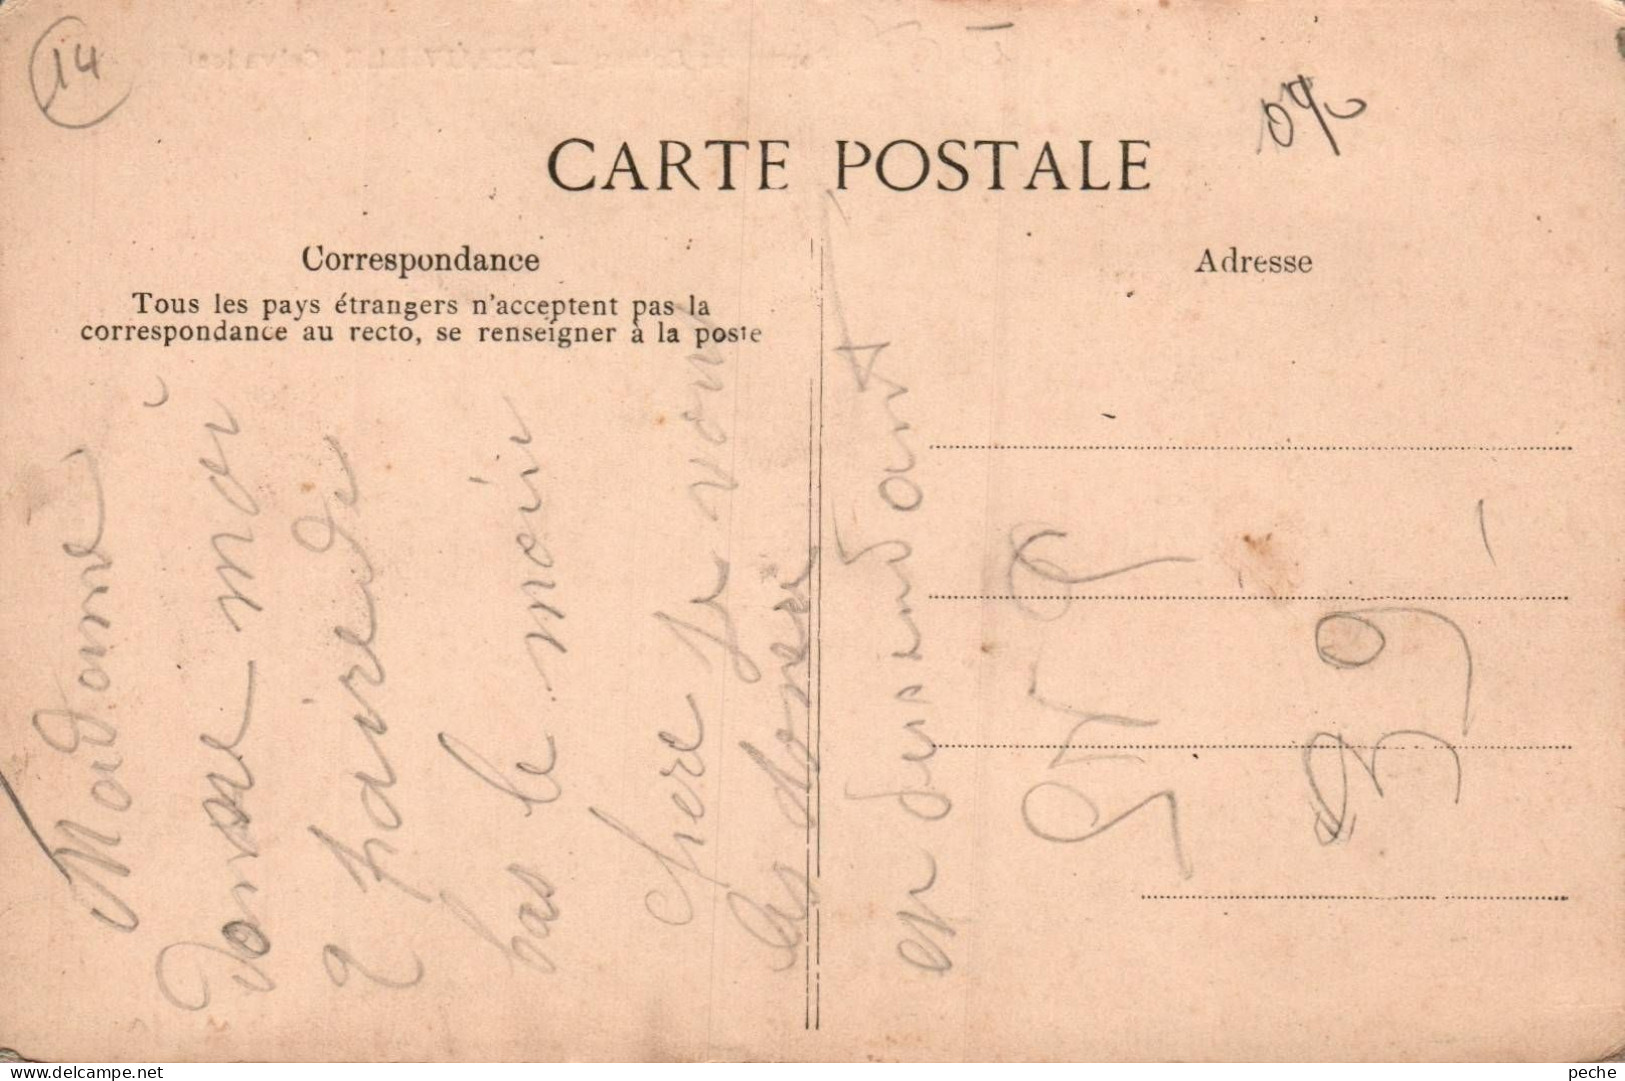 14
CARTE POSTALE
Correspondance
Tous les pays étrangers n'acceptent pas la
correspondance au recto, se renseigner à la poste
Adresse
Madame
donne moi
2 paire de
bas le moin
chere je vous
les donner
en dessendant
39
www.delcampe.net
peche